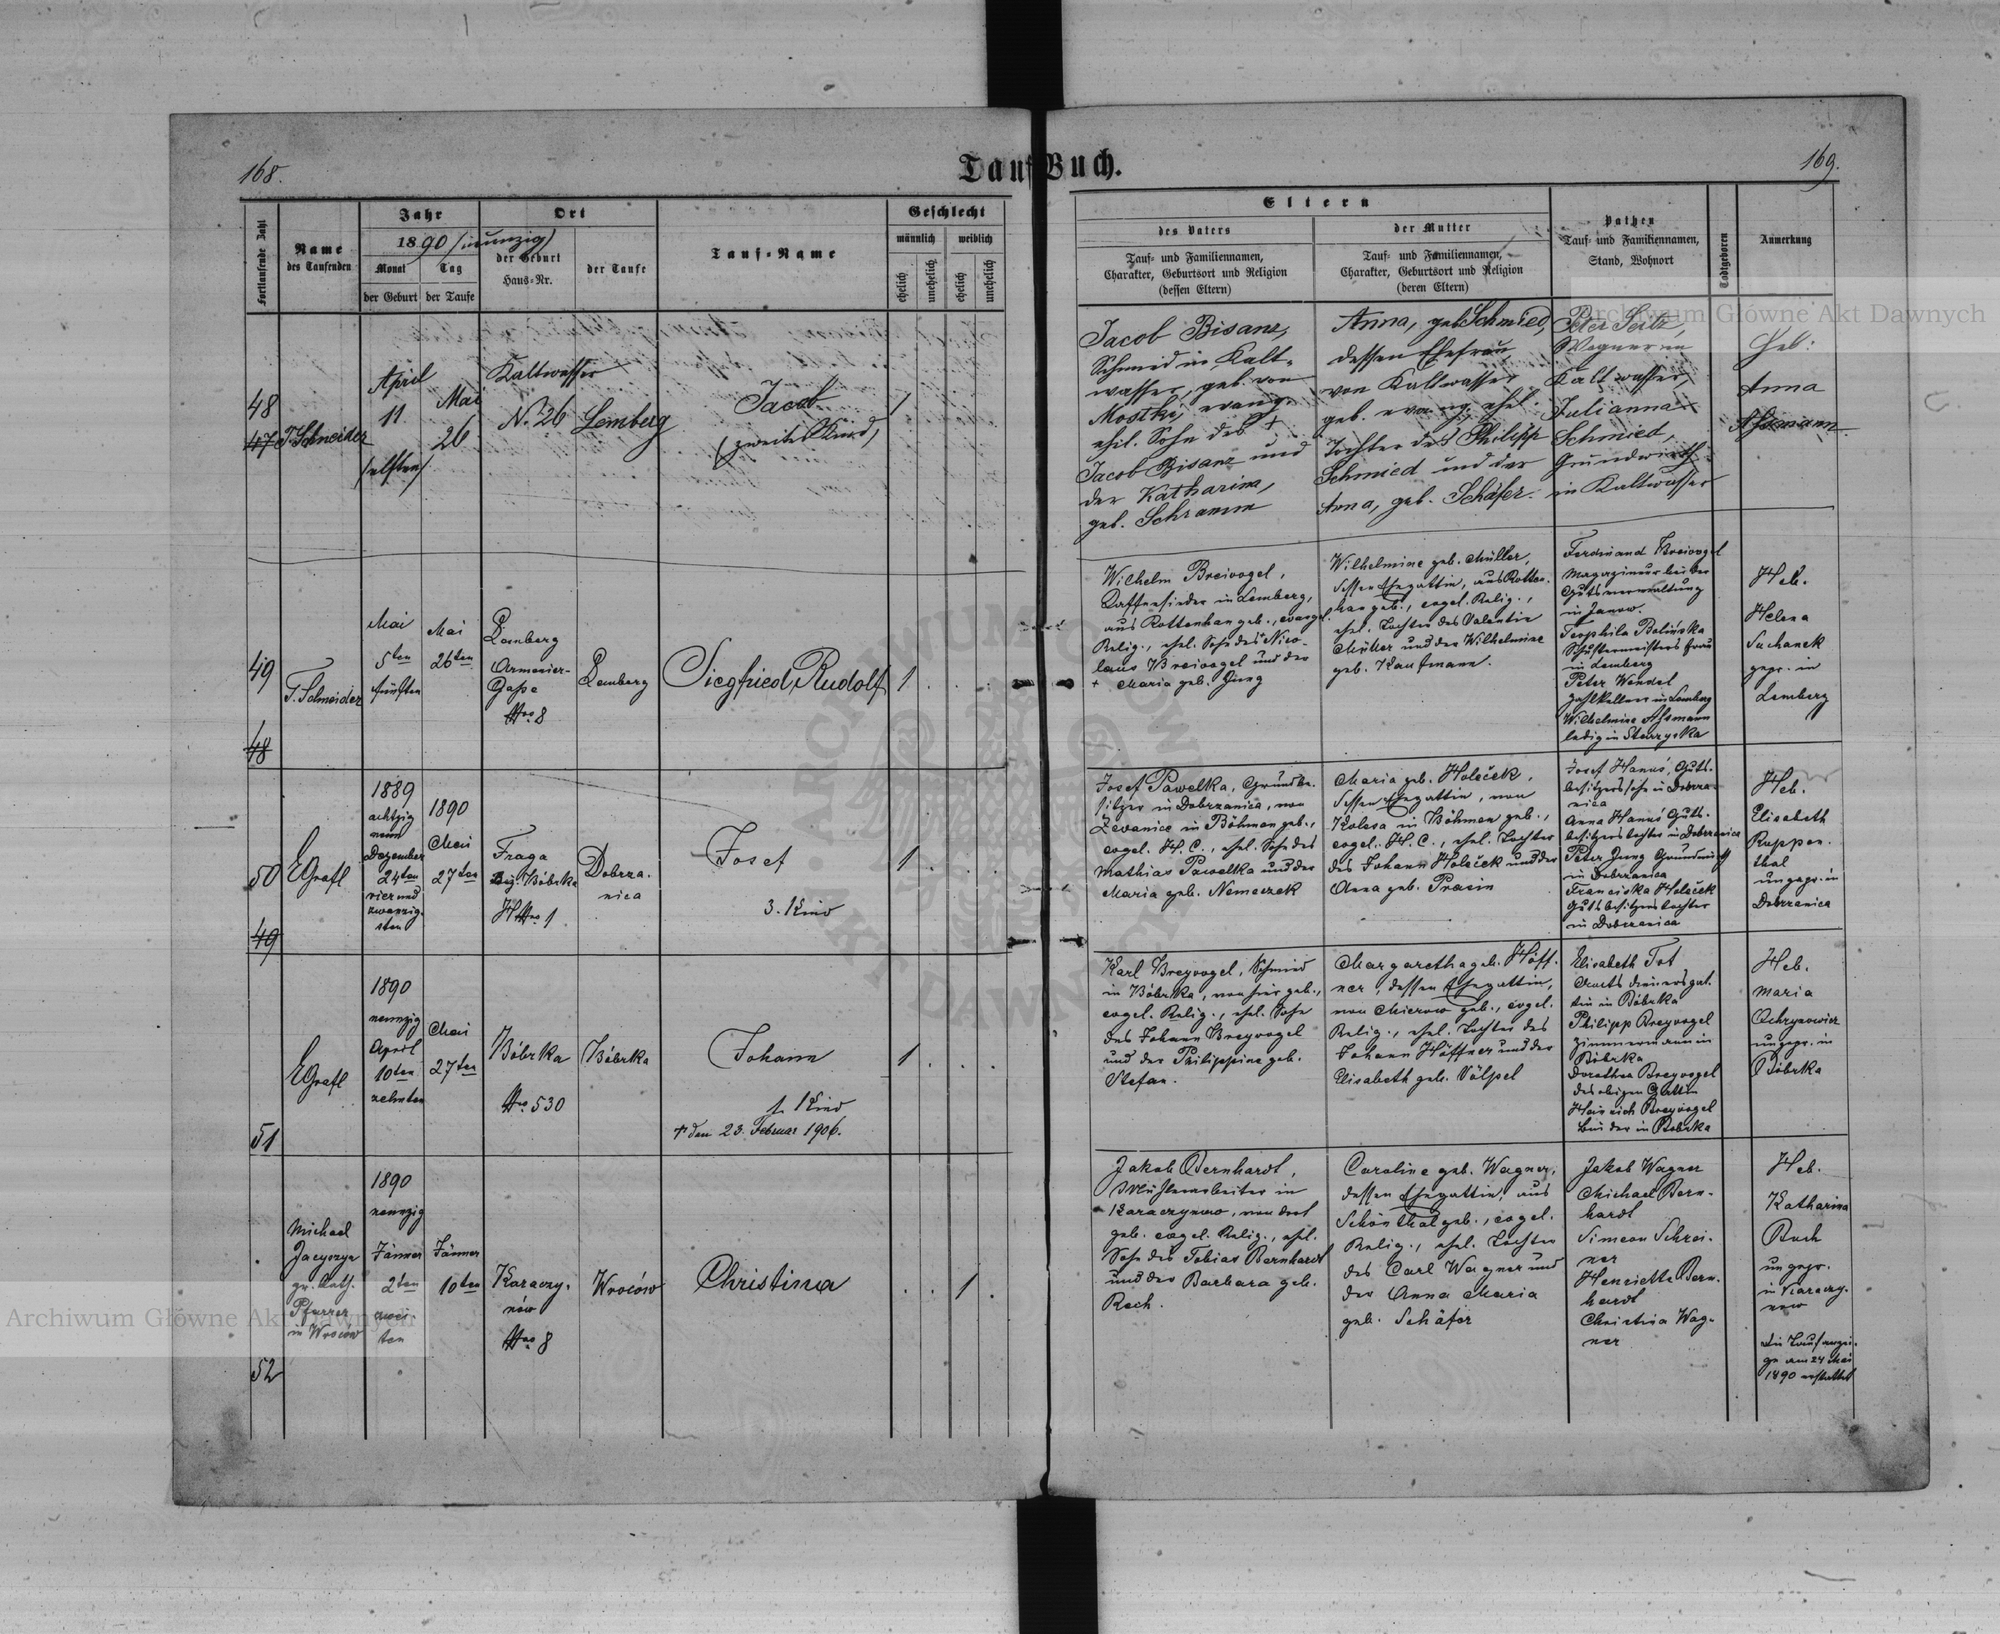 168.
Tauf Buch.
169.
Fortlaufende Zahl
Name
des Taufenden
Jahr
1890 /neunzig/
Monat
Tag
der Geburt
der Taufe
Ort
der Geburt
Haus-Nr.
der Taufe
Tauf-Name
Geschlecht
männlich
weiblich
ehelich
unehelich
ehelich
unehelich
Eltern
des Vaters
Tauf- und Familiennamen,
Charakter, Geburtsort und Religion
(dessen Eltern)
der Mutter
Tauf- und Familiennamen,
Charakter, Geburtsort und Religion
(deren Eltern)
Pathen
Tauf- und Familiennamen,
Stand, Wohnort
Todtgeboren
Anmerkung
48
47
T. Schneider
April
11
/elften/
Mai
26
Kaltwasser
No. 26
Lemberg
Jacob
(zweites Kind)
1
Jacob Bisanz,
Schmied in Kalt-
wasser, geb. von
Mostki, evang.
ehel. Sohn des +
Jacob Bisanz und
der Katharina,
geb. Schramm
Anna, geb. Schmied,
dessen Ehefrau,
von Kaltwasser
geb. evang. ehel.
Tochter des Philipp
Schmied und der
Anna, geb. Schäfer.
Peter Seitz,
Wagner in
Kaltwasser,
Julianna
Schmied,
Grundwirth
in Kaltwasser
Heb:
Anna
Assmann
49
48
T. Schneider
Mai
5ten
fünften
Mai
26ten
Lemberg
Armenier-
Gasse
Nro 8
Lemberg
Siegfried Rudolf
1 . . .
Wilhelm Breivogel,
Kaffeesieder in Lemberg,
aus Rottenhan geb., evangel.
Relig., ehel. Sohn des + Nico-
laus Breivogel und der
+ Maria geb. Jung
Wilhelmine geb. Müller,
dessen Ehegattin, aus Rotten-
han geb., evgel. Relig.,
ehel. Tochter des Valentin
Müller und der Wilhelmine
geb. Kaufmann.
Ferdinand Breivogel
Magazineur bei der
Gutsverwaltung
in Janow.
Teophila Bolińska
Schustermeisters Frau
in Lemberg
Peter Wendel
Zahlkellner in Lemberg
Wilhelmine Assmann
ledig in Starzyska
Heb.
Helena
Suchanek
gepr. in
Lemberg
50
49
E Grafl
1889
achtzig
neun
Dezember
24ten
vier und
zwanzig-
sten
1890
Mai
27ten
Fraga
Bez. Bóbrka
H Nro 1
Dobrza-
nica
Josef
3. Kind
1 . . .
Josef Pawelka, Grundbe-
sitzer in Dobrzanica, von
Zevanice in Böhmen geb.,
evgel. H. C., ehel. Sohn des
Mathias Pawelka und der
Maria geb. Nemeczek
Maria geb. Holeček,
dessen Ehegattin, von
Kolesa in Böhmen geb.,
evgel. H. C., ehel. Tochter
des Johann Holeček und der
Anna geb. Prasin
Josef Hanuś, Guts-
besitzerssohn in Dobrza-
nica
Anna Hanuś Guts-
besitzerstochter in Dobrzanica
Peter Jung Grundwirth
in Dobrzanica
Franciska Holeček
Gutsbesitzerstochter
in Dobrzanica
Heb.
Elisabeth
Ruppen-
thal
ungepr. in
Dobrzanica
51
E Grafl
1890
neunzig
April
10ten
zehnten
Mai
27ten
Bóbrka
Nro 530
Bóbrka
Johann
1. Kind
† den 23. Februar 1906.
1 . . .
Karl Breyvogel, Schmied
in Bóbrka, von hier geb.,
evgel. Relig., ehel. Sohn
des Johann Breyvogel
und der Philippine geb.
Stefan.
Margaretha geb. Höff-
ner, dessen Ehegattin,
von Mierow geb., evgel.
Relig., ehel. Tochter des
Johann Höffner und der
Elisabeth geb. Völpel
Elisabeth Tot
Amtsdienersgat-
tin in Bóbrka
Philipp Breyvogel
Zimmermann in
Bóbrka
Dorothea Breyvogel
des obigen Gattin
Heinrich Breyvogel
Binder in Bóbrka
Heb.
Maria
Ochrymowicz
ungepr. in
Bóbrka
52
Michael
Jacyszyn
gr. kath.
Pfarrer
in Wrocow
1890
neunzig
Jänner
2ten
zwei-
ten
Jänner
10ten
Karaczy-
nów
Nro 8
Wroców
Christina
. . 1 .
Jakob Bernhardt,
Mühlarbeiter in
Karaczynow, von dort
geb. evgel. Relig., ehel.
Sohn des Tobias Bernhardt
und der Barbara geb.
Rech.
Caroline geb. Wagner,
dessen Ehegattin, aus
Schönthal geb., evgel.
Relig., ehel. Tochter
des Carl Wagner und
der Anna Maria
geb. Schäfer
Jakob Wagner
Michael Bern-
hardt
Simeon Schrei-
ner
Henriette Bern-
hardt
Christina Wag-
ner
Heb.
Katharina
Ruch
ungepr.
in Karaczy-
now
die Taufanzei-
ge am 24 Mai
1890 erstattet
Archiwum Główne Akt Dawnych
Archiwum Główne Akt Dawnych